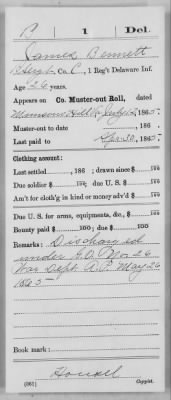 B | 1 | Del.
James Bennett
Sergt, Co. C, 1 Reg't Delaware Inf.
Age 26 years
Appears on Co. Muster-out Roll, dated
Munsons Hill Va July 12, 1865.
Muster-out to date , 186 .
Last paid to Apr 30, 1865.
Clothing account:
Last settled , 186 ; drawn since $ 100
Due soldier $ 100; due U. S. $ 100
Am't for cloth'g in kind or money adv'd $ 100
Due U. S. for arms, equipments, &c., $ 100
Bounty paid $ 100; due $ 100
Remarks: Discharged
under G.O. No. 26
War Dept. A.P. May 26
1865
Book mark:
Housel
(861) Copyist.